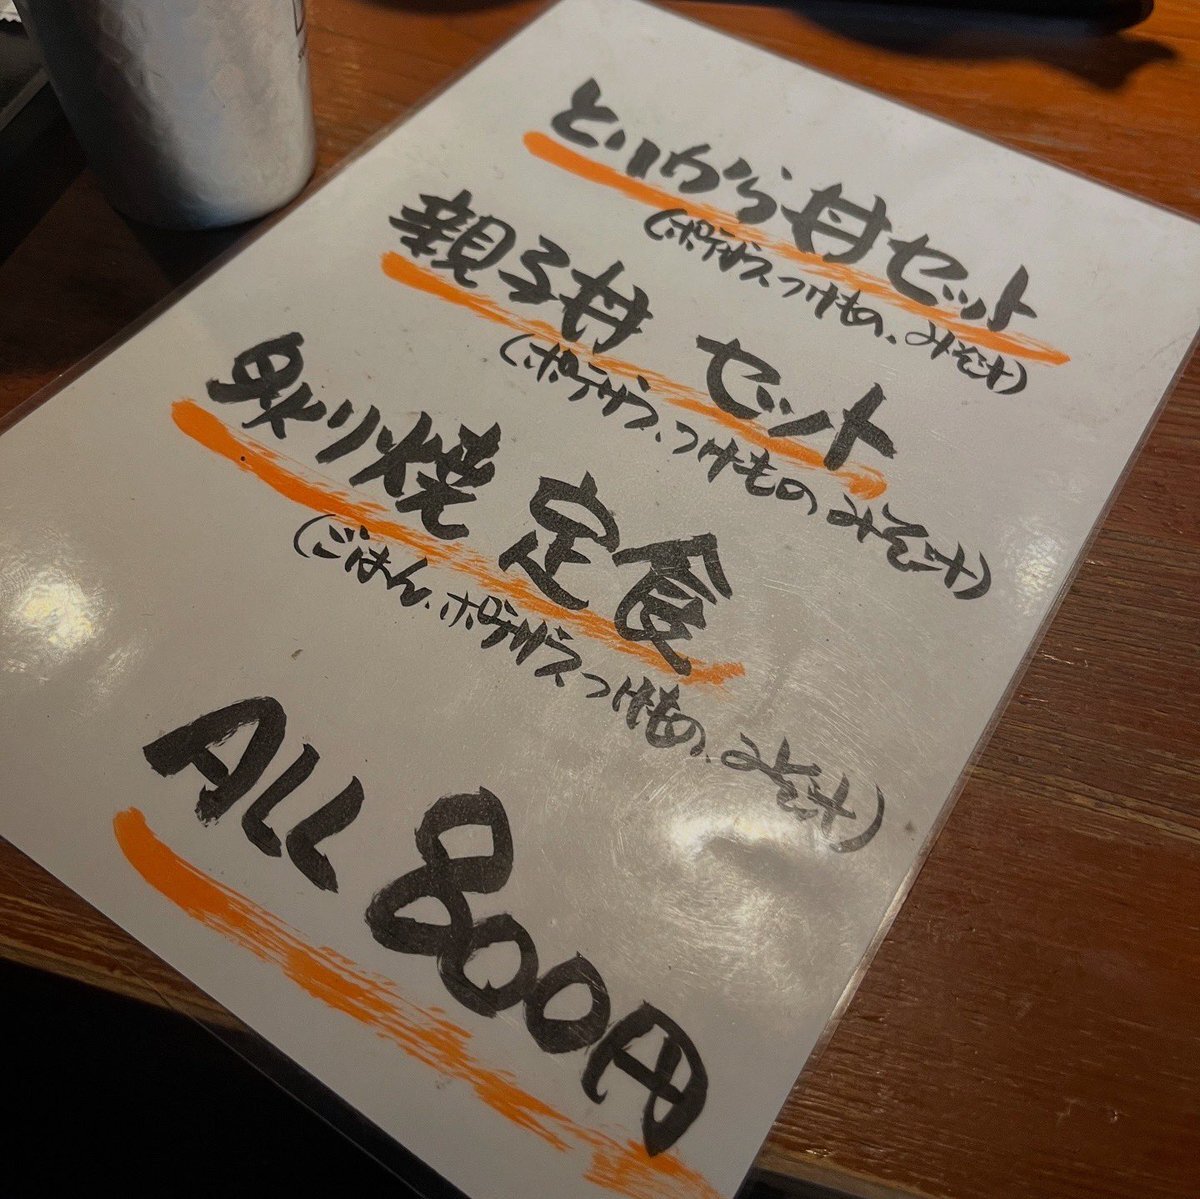 とりから丼セット
(ポテサラ、つけもの、みそ汁)
親子丼 セット
(ポテサラ、つけもの みそ汁)
炙り焼 定食
(ごはん、ポテサラ、つけもの、みそ汁)
ALL 800円